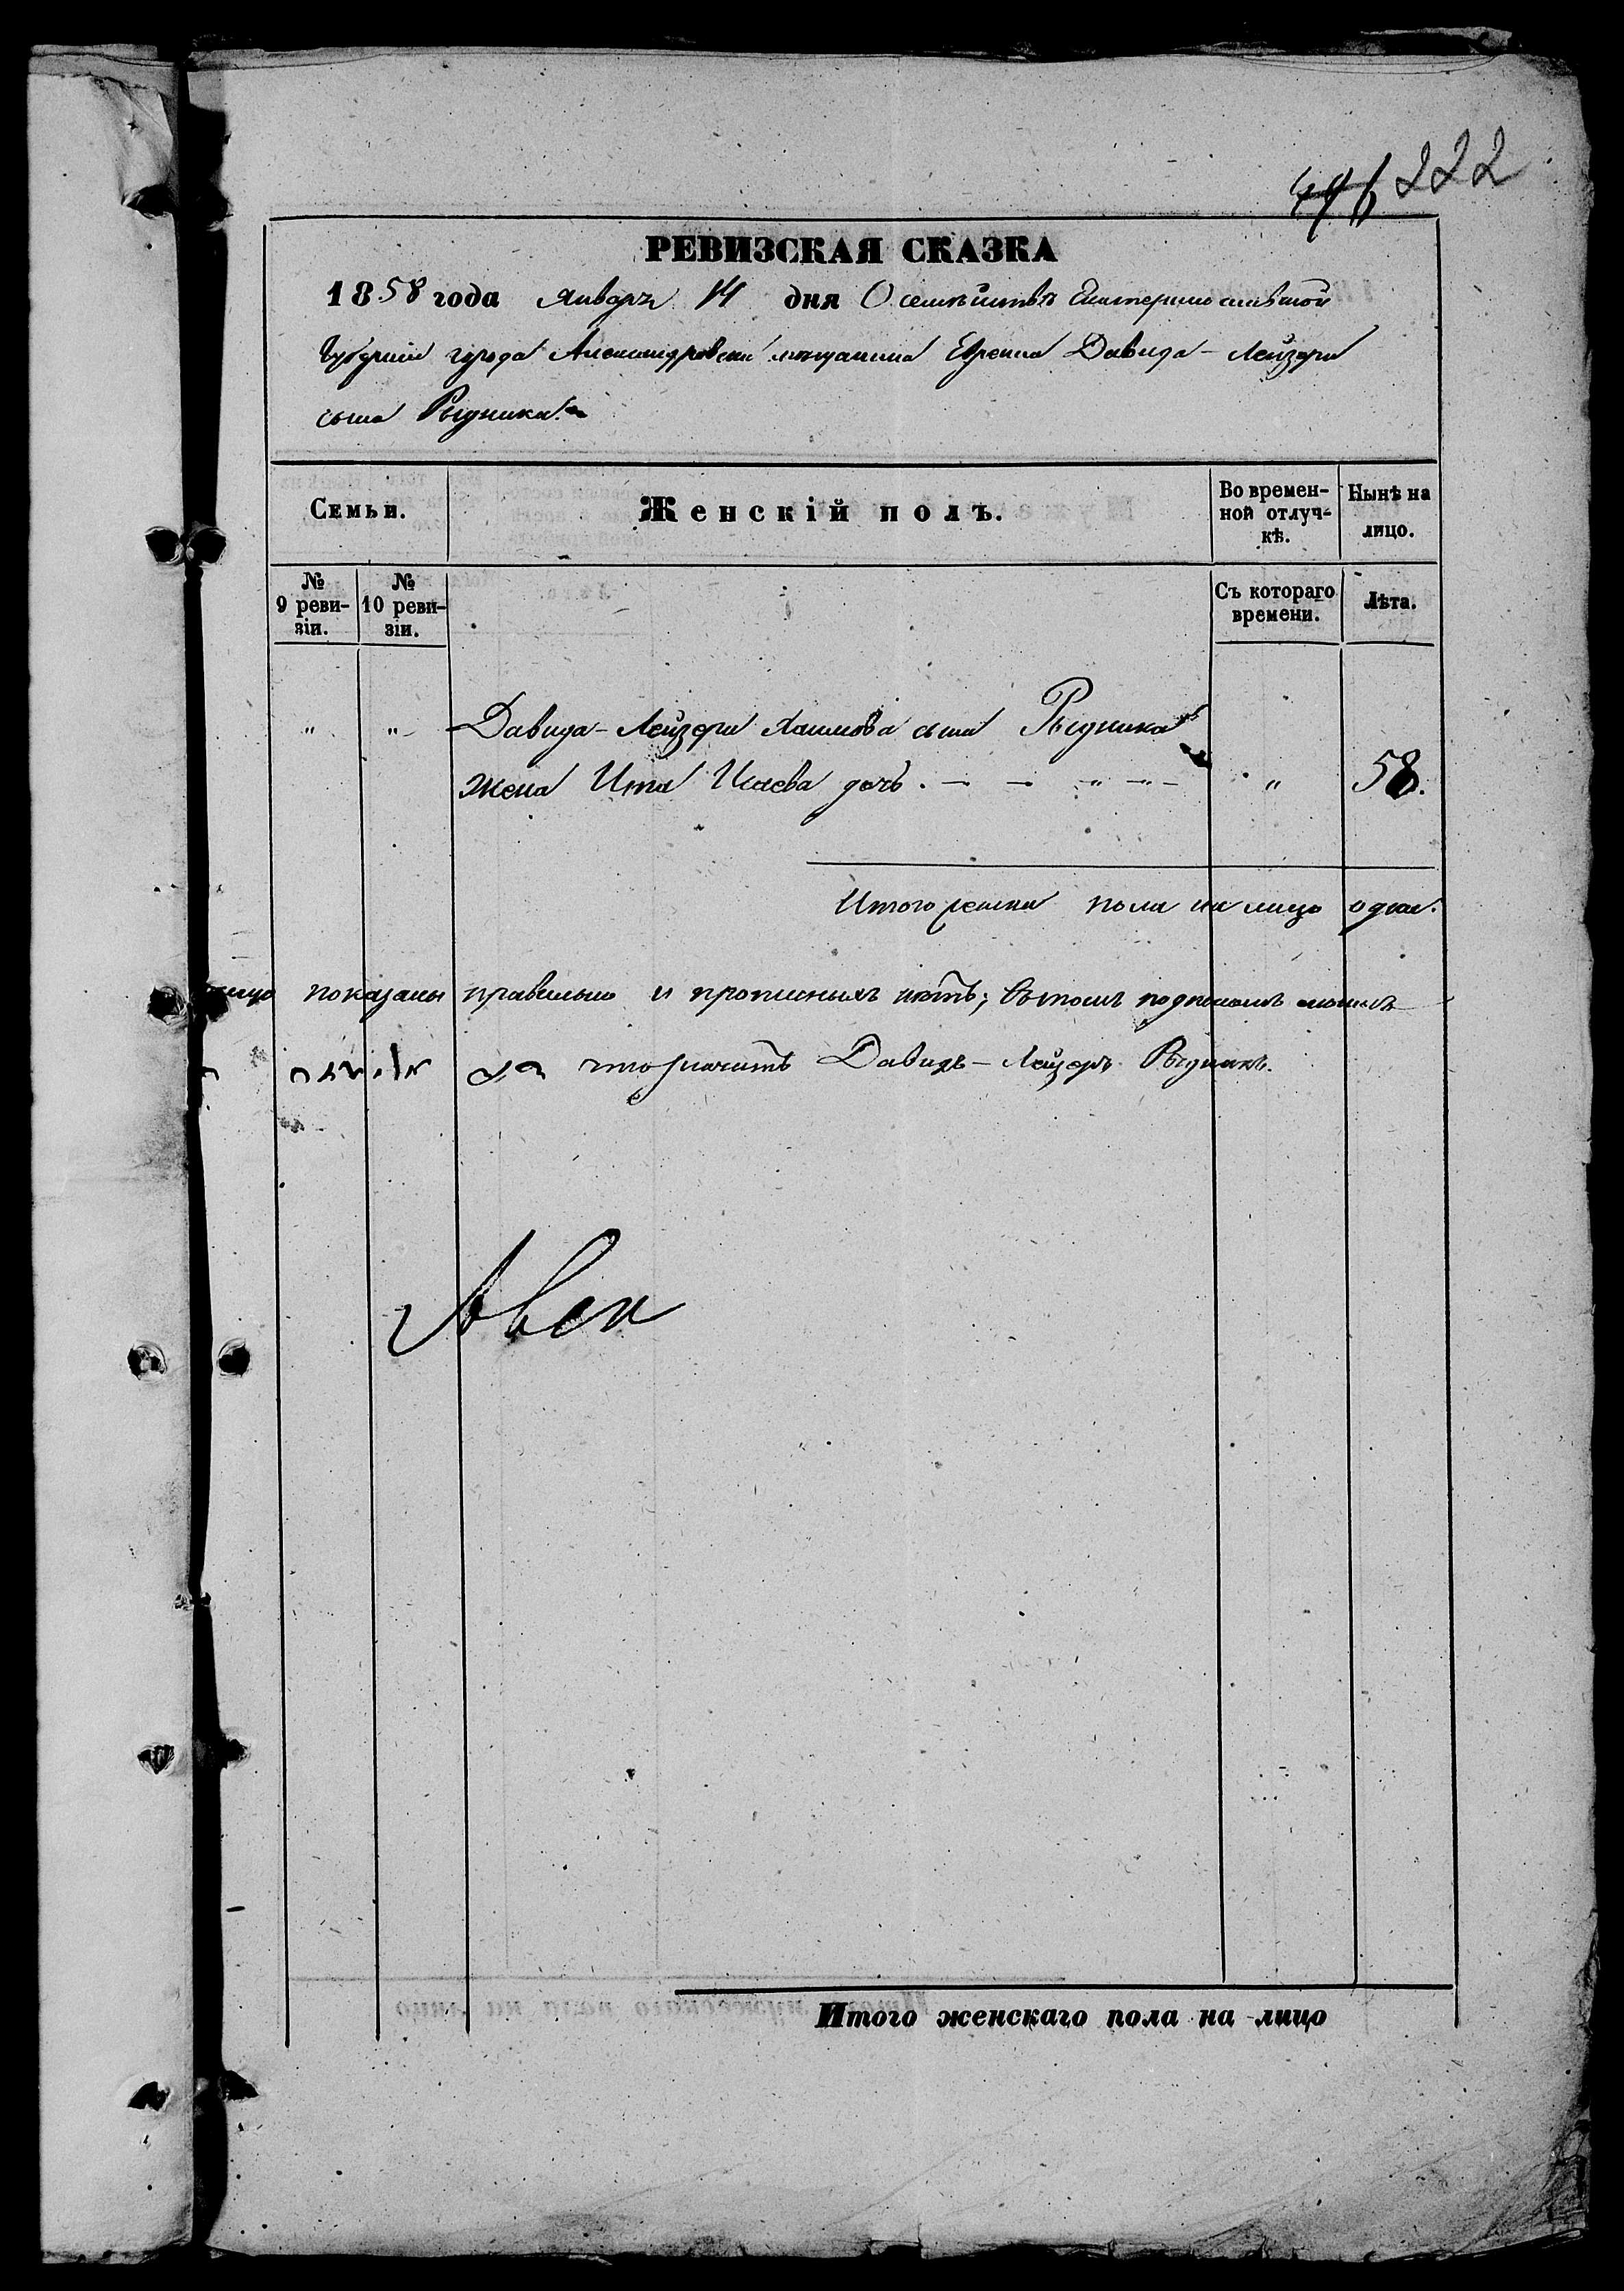 222
РЕВИЗСКАЯ СКАЗКА
1858 года Январь 14 дня О семействѣ Екатеринославской
Губернии города Александровска мещанина Еврея Давида-Лейзера
сына Рыдника
Семьи.
Женскій полъ.
Во времен-
ной отлуч-
кѣ.
Нынѣ на
лицо.
№
9 реви-
зіи.
№
10 реви-
зіи.
Съ котораго
времени.
Лѣта.
" " Давида-Лейзера Хаимова сына Рыдника
жена Ита Исаева дочь . — — " — " 58.
Итого женска пола на лицо одна.
лицо показаны правильно и прописныхъ нѣтъ; въ томъ подписомъ
что значитъ Давидъ-Лейзеръ Рыдникъ.
Итого женскаго пола на-лицо